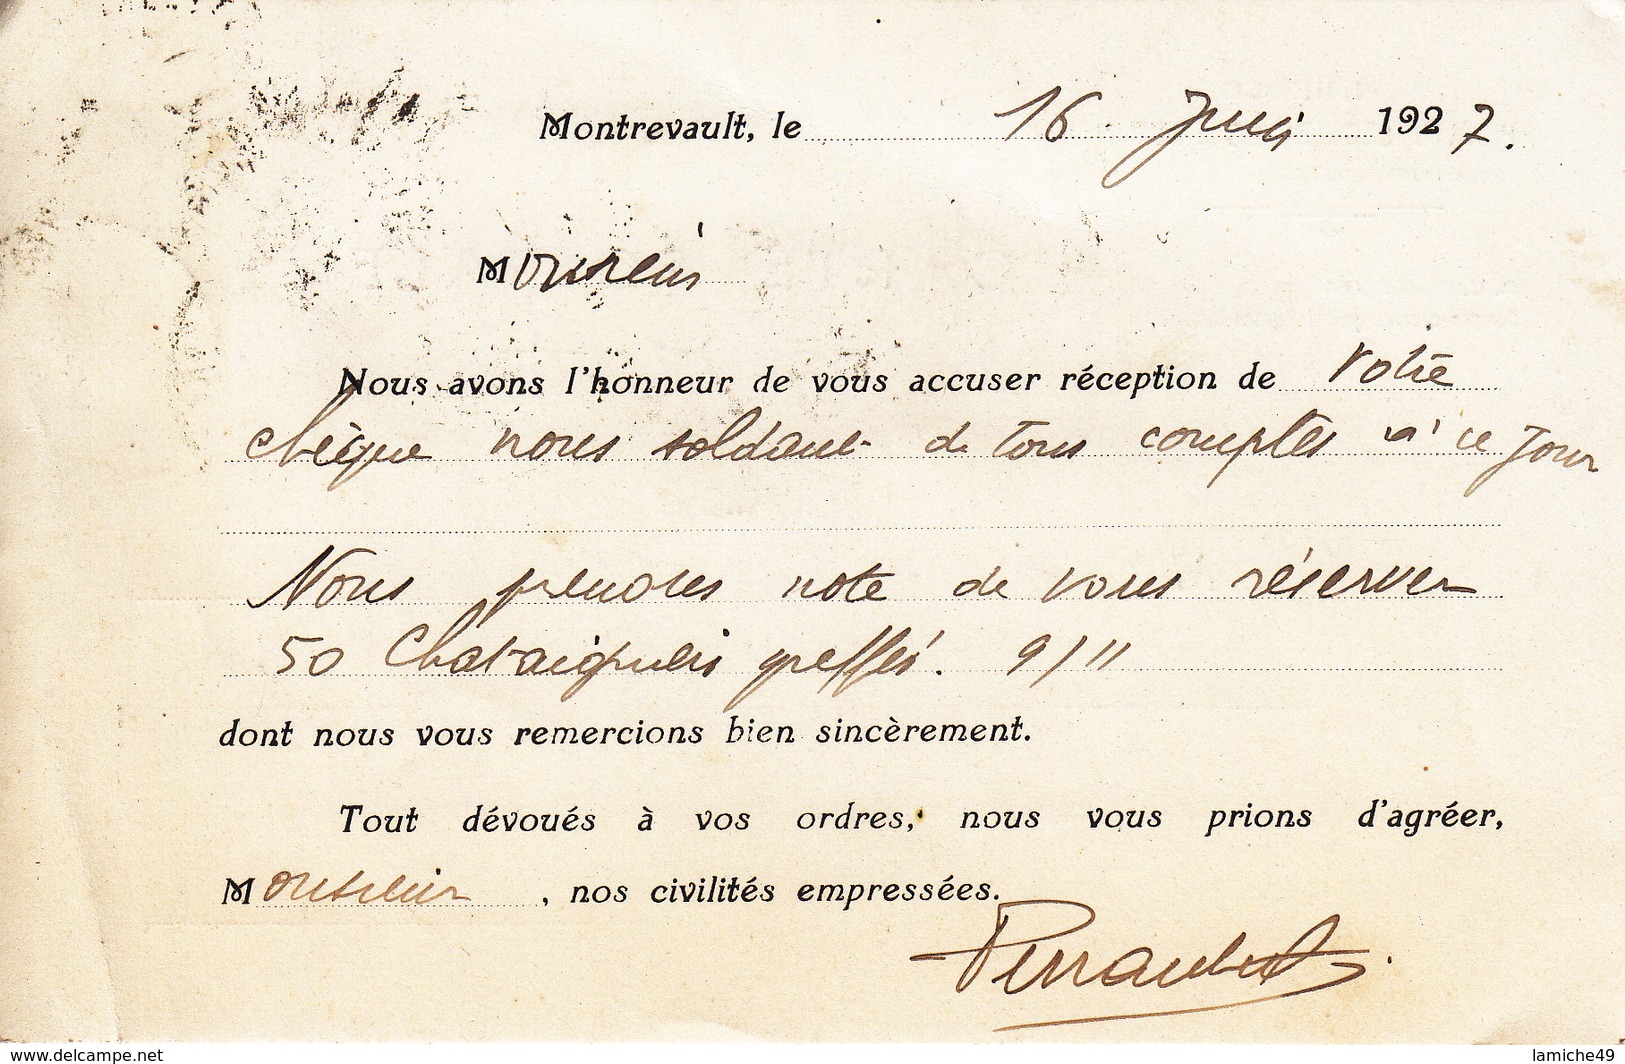 Montrevault, le 16 Juin 1927.
Monsieur
Nous avons l'honneur de vous accuser réception de votre
chèque nous soldant de tous comptes à ce Jour
Nous prenons note de vous réserver
50 Chataigniers greffés. 9/11
dont nous vous remercions bien sincèrement.
Tout dévoués à vos ordres, nous vous prions d'agréer,
Monsieur, nos civilités empressées.
www.delcampe.net
lamiche49